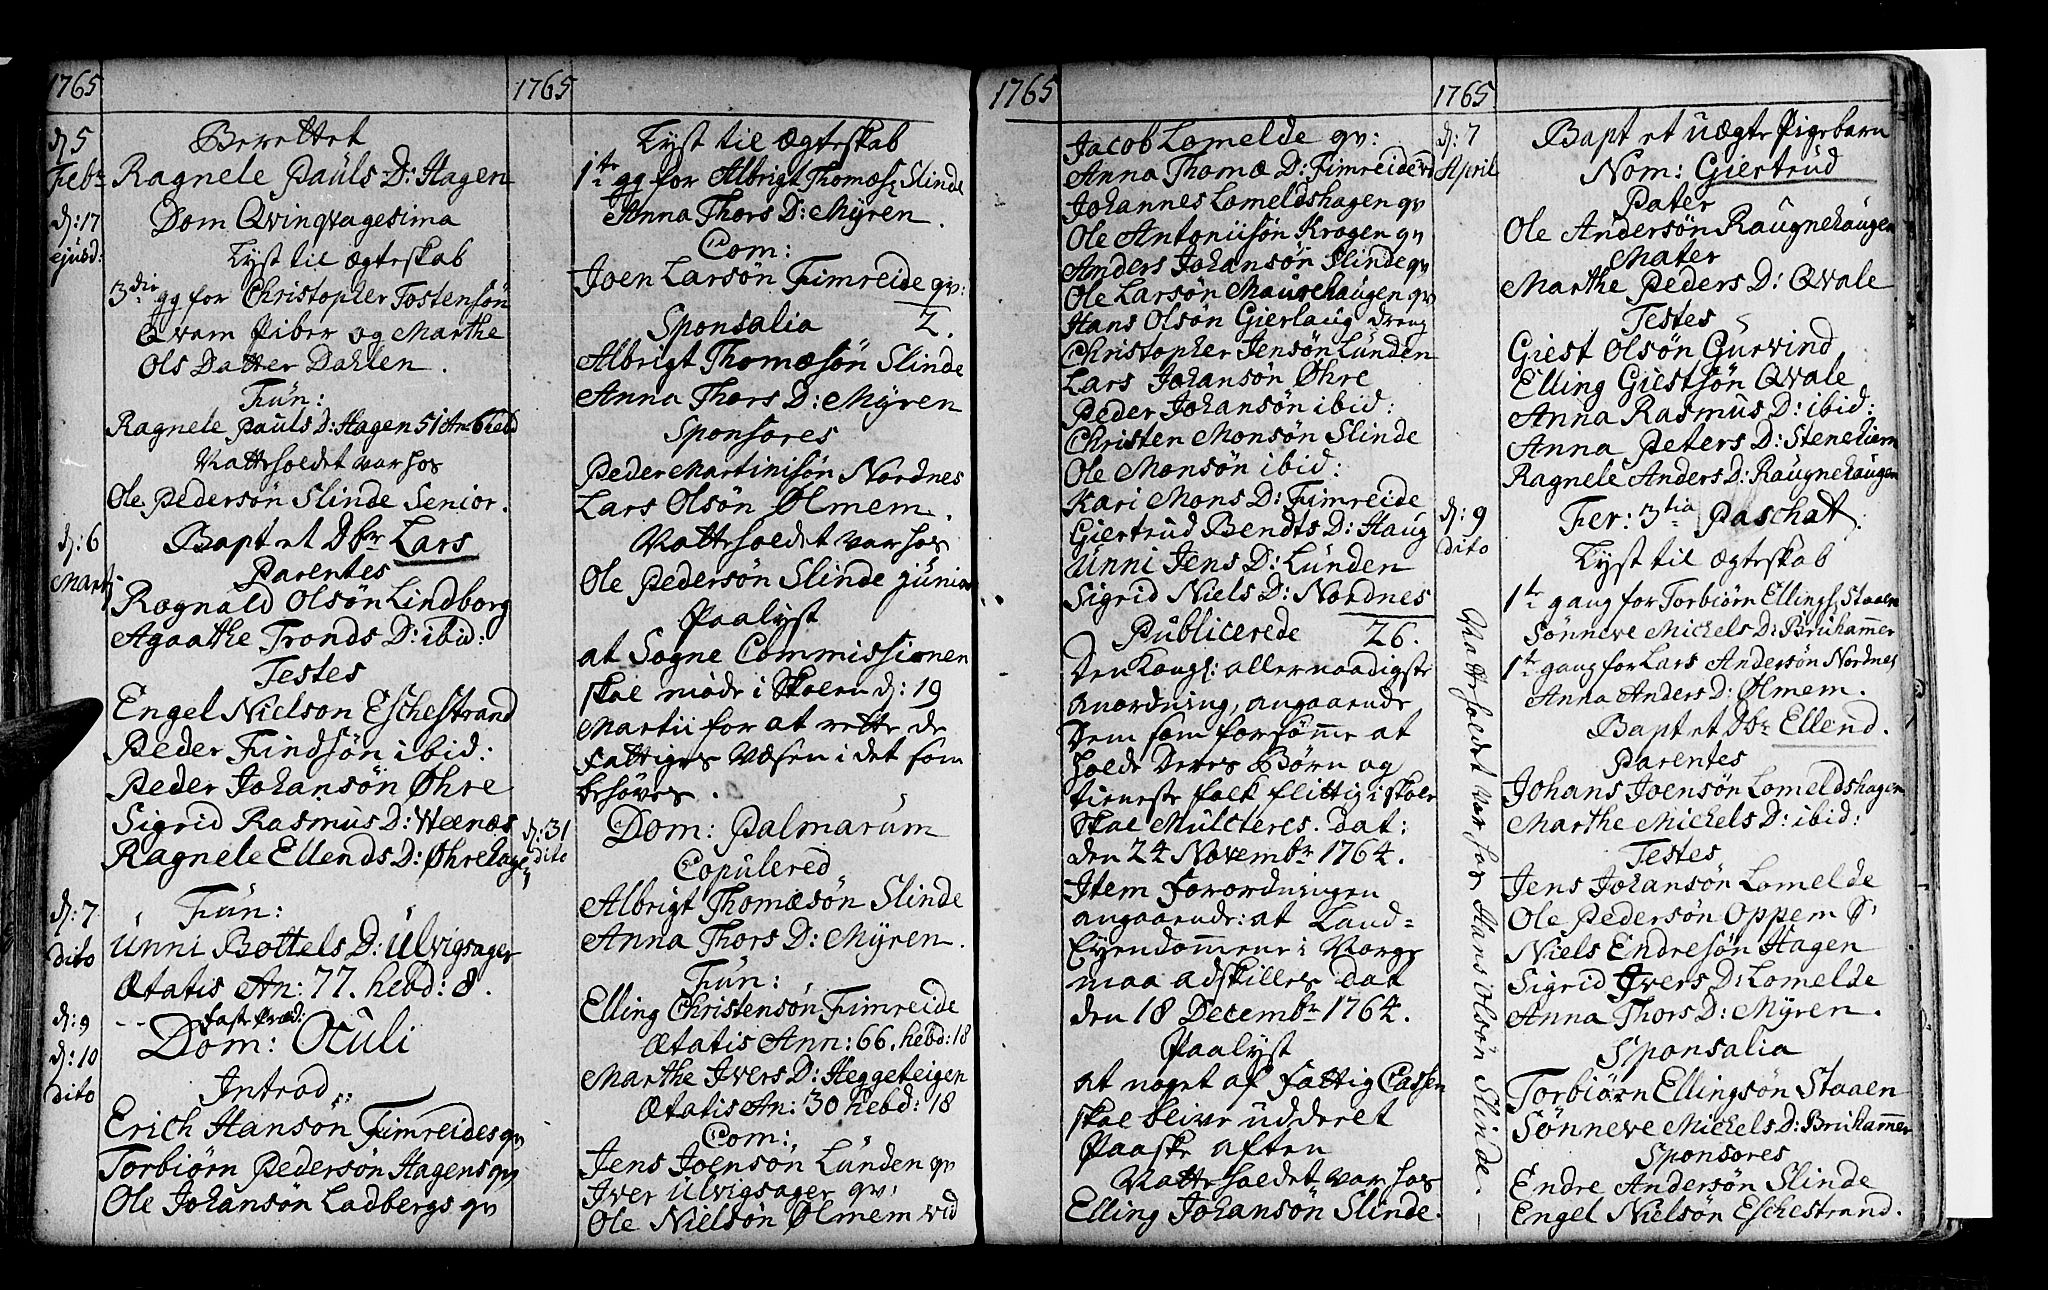 1765
d: 5
Febr
Berettet
Ragnele Pauls D: Hagen
d: 17
ejusd:
Dom Qvinqvagesima
Lyst til Ægteskab
3die gg for Christopher Tostensön
Qvam Piber og Marthe
Ols Datter Dahlen.
Fün:
Ragnele Pauls D: Hagen 51 An 6 hebd
Nattesoedet var hos
Ole Pedersön Slinde Senior.
d: 6
Martj
Bapt et Dbr Lars
Parentes
Ragnald Olsön Lindborg
Agaathe Tronds D: ibid:
Testes
Engel Nielson Eschestrand
Peder Findsön ibid:
Peder Johansön Øhre
Sigrid Rasmus D: Weenæs
Ragnele Ellends D: Øhrehagen
d: 7
dito
Fün:
Ünni Bottels D: Ülvigsager
Ætatis An: 77. hebd: 8.
d: 9
Faste Præd:
d: 10
dito
Dom: Oculi
Introd.:
Erich Hansön Fimreides qv
Torbiörn Pedersön Hagens qv
Ole Johansön Ladbergs qv
1765
Lyst til Ægteskab
1te gg for Albrigt Thomæs: Slinde
Anna Thors D: Myren.
Com:
Joen Larsön Fimreide qv:
Sponsalia 2.
Albrigt Thomæsön Slinde
Anna Thors D: Myren
Sponsores
Peder Martinisön Nordnes
Lars Olsön Ølmem.
Nattesoedet var hos
Ole Pedersön Slinde junior
Paalyst
at Sogne Commissionen
skal möde i Skolen d: 19
Martii for at rette de
Fattiges Væsen i det som
behöves.
d: 31
dito
Dom: Palmarum
Copülered
Albrigt Thomæsön Slinde
Anna Thors D: Myren.
Fün:
Elling Christensön Fimreide
Ætatis Ann: 66. hebd: 18
Marthe Jvers D: Heggeteigen
Ætatis An: 30 hebd: 18
Com:
Jens Joensön Lünden qv
Jver Ülvigsager qv:
Ole Nielsön Ølmem vid
1765
Jacob Lomelde qv:
Anna Thomæ D: Fimreide vid
Johannes Lomeldshagen qv
Ole Antoniisön Krogen qv
Anders Johansön Slinde qv
Ole Larsön Maurehaugen qv
Hans Olsön Gierlaug dreng
Christopher Jensön Lünden
Lars Johansön Øhre
Peder Johansön ibid:
Christen Monsön Slinde
Ole Monsön ibid:
Kari Mons D: Fimreide
Giertrud Bendts D: Haug
Ünni Jens D: Lünden
Sigrid Niels D: Nordnes
Publicerede 26.
Den Kongl: allernaadigste
Anordning, angaaende
Dem som forsömme at
holde Deres Börn og
tieneste folk flittig i skole
skal Mülcteres. dat:
den 24 Novembr 1764.
Item Forordningen
angaaende: at Land=
Eyendommene i Norge
maa adskilles dat
den 18 Decembr 1764.
Paalyst
at noget af Fattig Cassen
skal blive udderet
Paaske aften
Nattesoedet var hos
Elling Johansön Slinde.
1765
d: 7
April
Bapt et uægte Pigebarn
Nom: Giertrud
Pater
Ole Andersön Raugnehaugen
Mater
Marthe Peders D: Qvale
Testes
Giest Olsön Gurvind
Elling Giestsön Qvale
Anna Rasmus D: ibid:
Anna Peters D: Stenehiem
Ragnele Anders D: Raugnehaugen
d: 9
dito
Fer: 3tia Paschatt:
Lyst til Ægteskab
1te gang for Torbiörn Ellings: Staaen
Sönneve Michels D: Bruhammer
1te gang for Lars Andersön Nordnes
Anna Anders D: Ølmem.
Bapt et Dbr Ellend.
Parentes
Johans Joensön Lomeldshagen
Marthe Michels D: ibid:
Testes
Jens Johansön Lomelde
Ole Pedersön Oppem S:
Niels Endresön Hagen
Sigrid Jvers D: Lomelde
Anna Thors D: Myren.
Sponsalia
Torbiörn Ellingsön Staaen
Sönneve Michels D: Bruhammer
Sponsores
Endre Andersön Slinde
Engel Nielsön Eschestrand.
Nattesoedet var hos Hans Olsön Slinde.